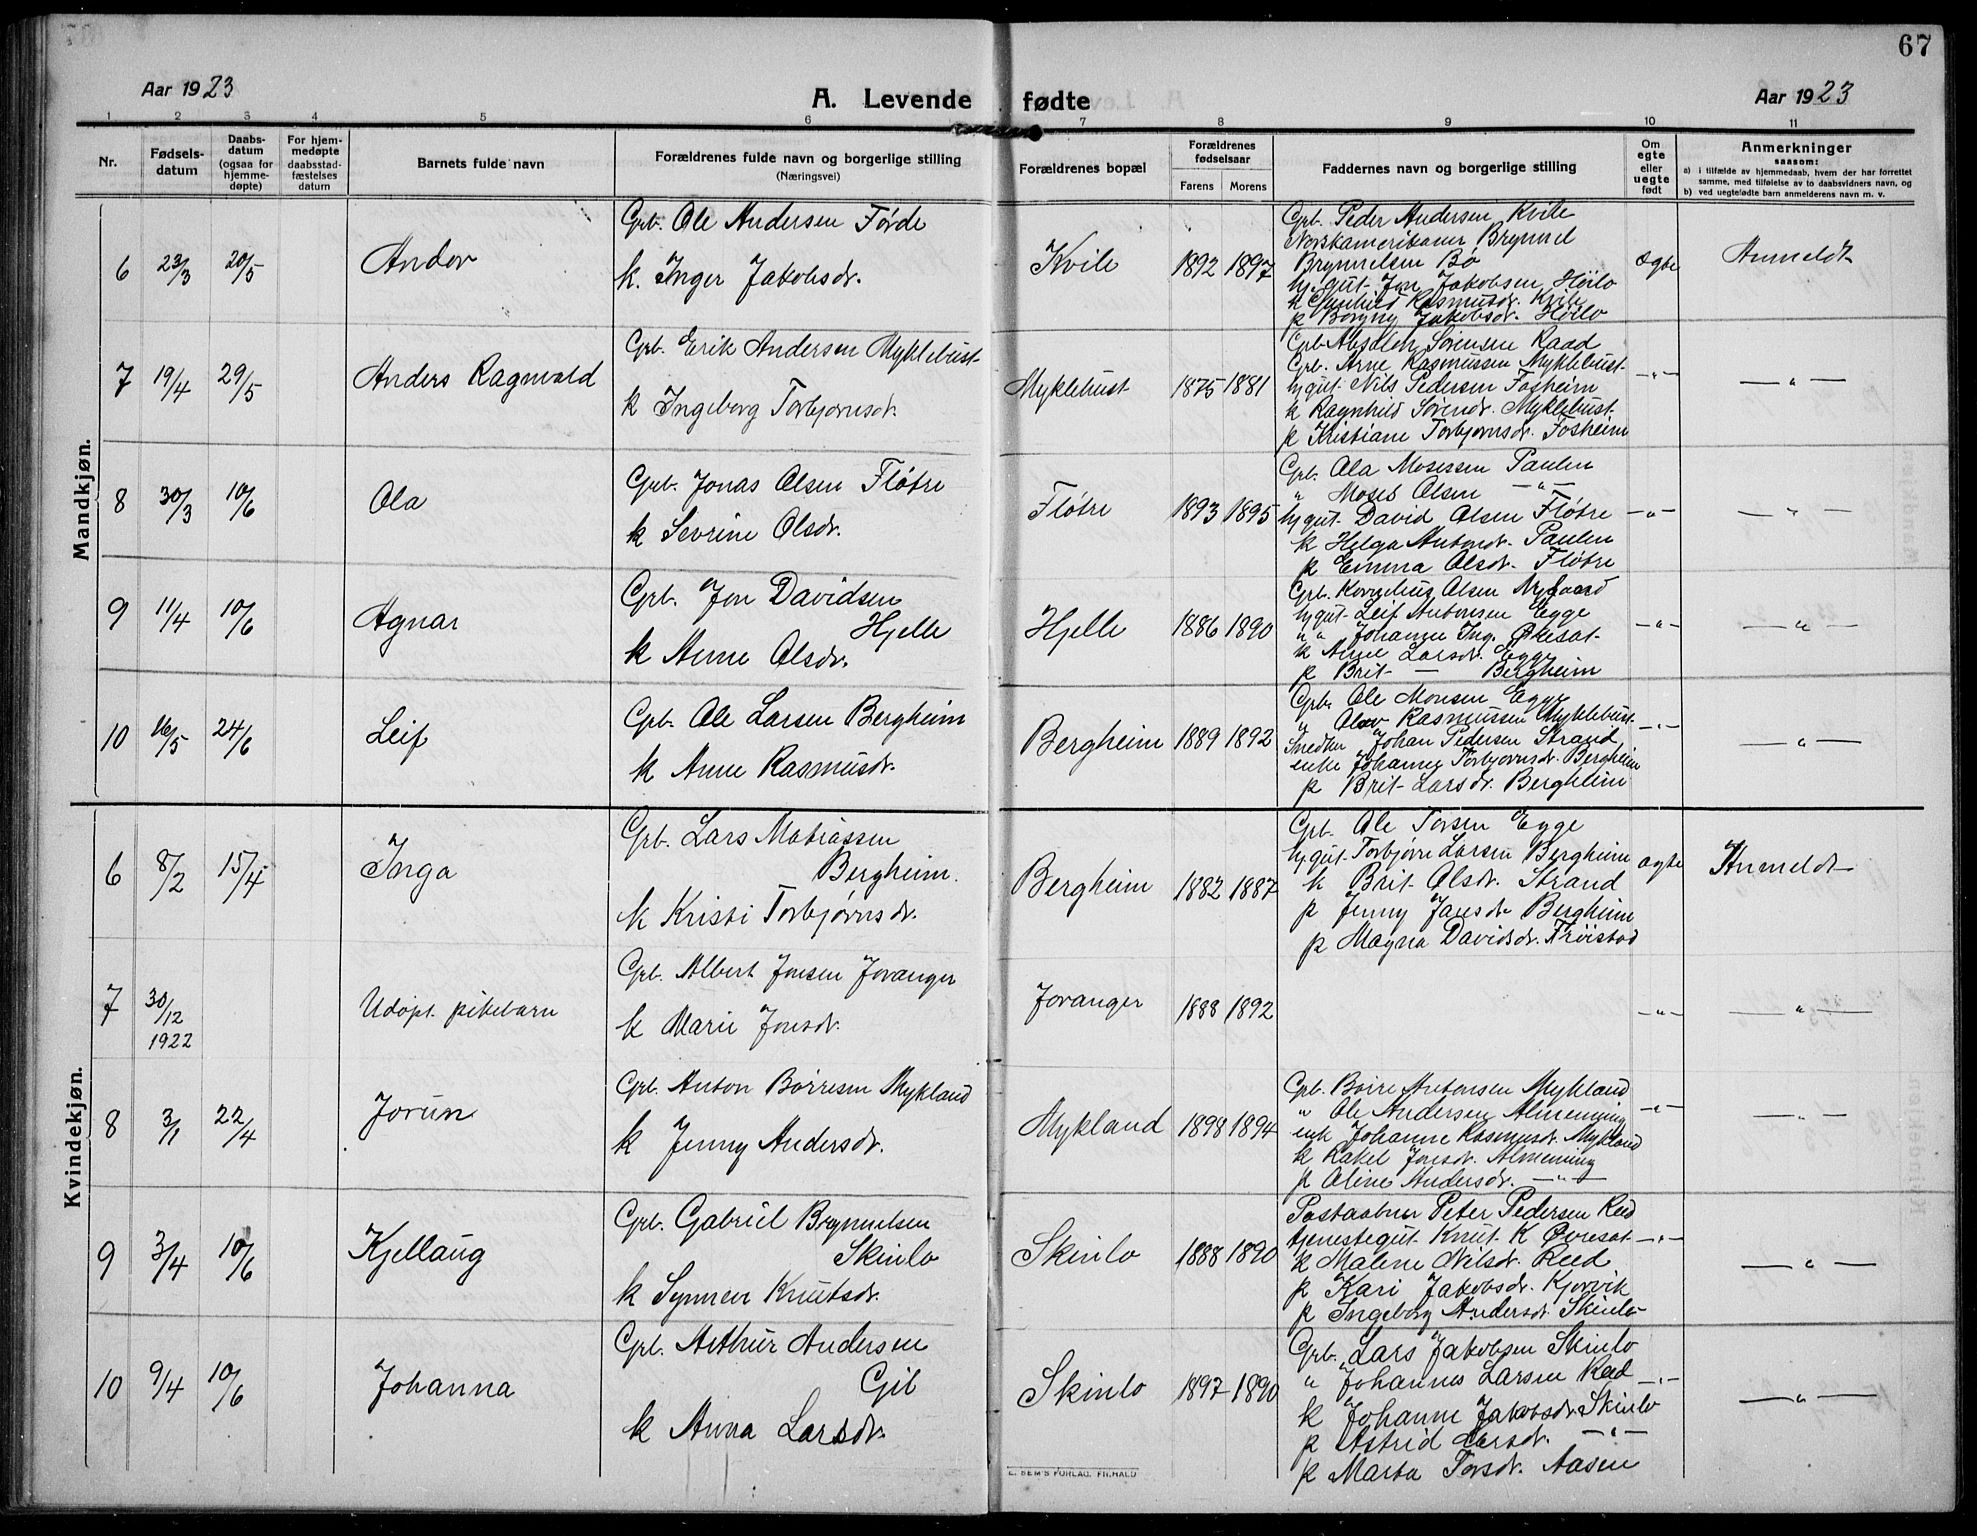 67
Aar 1923
A. Levende fødte
Aar 1923
1 2 3 4 5 6 7 8 9 10 11
Nr.
Fødsels-
datum
Daabs-
datum
(ogsaa for
hjemme-
døpte)
For hjem-
medøpte
daabsstad-
fæstelses
datum
Barnets fulde navn
Forældrenes fulde navn og borgerlige stilling
(Næringsvei)
Forældrenes bopæl
Forældrenes
fødselsaar
Farens Morens
Faddernes navn og borgerlige stilling
Om
egte
eller
uegte
født
Anmerkninger
saasom:
a) i tilfælde av hjemmedaab, hvem der har forrettet
samme, med tilføielse av to daabsvidners navn, og
b) ved uegtefødte barn anmelderens navn m. v.
Mandkjøn.
6 23/3 20/5 Andor
Grb. Ole Andersen Förde
k. Inger Jakobsdr.
Kvile 1892 1897
Grb. Peder Andersen Kvile
Norskamerikaner Brynnel
Brynnelsen Bø
hj.gut Jon Jakobsen Höilo
k Gunhild Rasmusdr. Kvile
p Borgny Jakobsdr. Höilo
ægte Anmeldt
7 19/4 29/5 Anders Ragnvald
Grb. Erik Andersen Myklebust
k Ingeborg Torbjørnsdr.
Myklebust 1875 1881
Grb Absalon Sörensen Raad
Grb. Arne Rasmussen Myklebust
hj.gut Nils Pedersen Fosheim
k Ragnhild Sörensdr. Myklebust
p Kristiane Torbjørnsdr. Fosheim
—"— —"—
8 30/3 10/6 Ola
Grb. Jonas Olsen Flötre
k Sevrine Olsdr.
Flötre 1893 1895
Grb. Ola Mosessen Paulen
" Moses Olsen —"—
hj.gut David Olsen Flötre
k Helga Antonsdr. Paulen
p Emma Olsdr. Flötre
—"— —"—
9 11/4 10/6 Agnar
Grb. Jon Davidsen
Hjelle
k Anne Olsdr.
Hjelle 1886 1890
Grb. Kornelius Olsen Nygaard
hj.gut Leif Antonsen Egge
" " Johannes Ing. Øvresat
k Anne Larsdr. Egge
p Brit — Bergheim
—"— —"—
10 16/5 24/6 Leif
Grb. Ole Larsen Bergheim
k Anne Rasmusdr.
Bergheim 1889 1892
Grb. Ole Monsen Egge
" Olav Rasmussen Myklebust
Snedker Johan Pedersen Strand
enke Johanne Torbjornsdr. Bergheim
p Brit Larsdr. Bergheim
—"— —"—
Kvindekjøn.
6 8/2 15/4 Inga
Grb. Lars Matiassen
Bergheim.
k Kristi Torbjørnsdr.
Bergheim 1882 1887
Grb. Ole Torsen Egge
hj.gut Torbjørn Larsen Bergheim
k Brit Olsdr. Strand
p Jenny Jansdr Bergheim
p Magna Davidsdr. Tröistad
ægte Anmeldt
7 30/12
1922
Udöpt pikebarn
Grb. Albert Jonsen Joranger
k Marie Jonsdr.
Joranger 1888 1892
—"— —"—
8 3/1 22/4 Jorun
Grb. Anton Börresen Mykland
k Jenny Andersdr.
Mykland 1898 1894
Grb. Börre Antonsen Mykland
" Ole Andersen Almenning
enk Johanne Rasmusdr. Mykland
k Rakel Jonsdr. Almenning
p Oline Andersdr. —"—
—"— —"—
9 3/4 10/6 Kjellaug
Grb. Gabriel Brynnelsen
Skinlo
k Synnev Knutsdr.
Skinlo 1888 1890
Postaabner Peter Pedersen Reed
tjenestegut Knut K Øvresat
k Malene Nilsdr. Reed
p Kari Jakobsdr. Kjorvik
p Ingeborg Andersdr. Skinlo
—"— —"—
10 9/4 10/6 Johanna
Grb. Arthur Andersen
Gil
k Anna Larsdr.
Skinlo 1897 1890
Grb. Lars Jakobsen Skinlo
" Johannes Larsen Reed
k Johanne Jakobsdr. Skinlo
p Astrid Larsdr. —"—
p Marta Torsdr. Aasen
—"— —"—
E. SEM'S FORLAG, FR.HALD